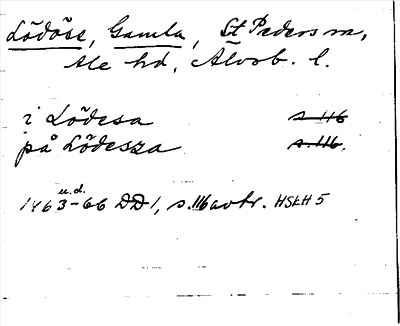 Lödöse, Gamla, St Peders sn,
Ale hd, Älvsb. l.
i Lödesa s 116
på Lödesza s. 116.
u.d.
1463-66 DD1, s. 116 avtr. HSLH 5